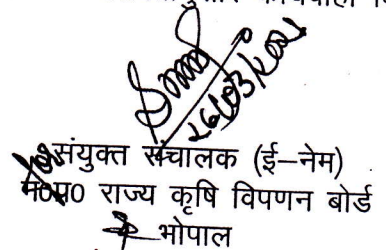 26/03/2021
संयुक्त संचालक (ई-नेम)
म०प्र० राज्य कृषि विपणन बोर्ड
भोपाल